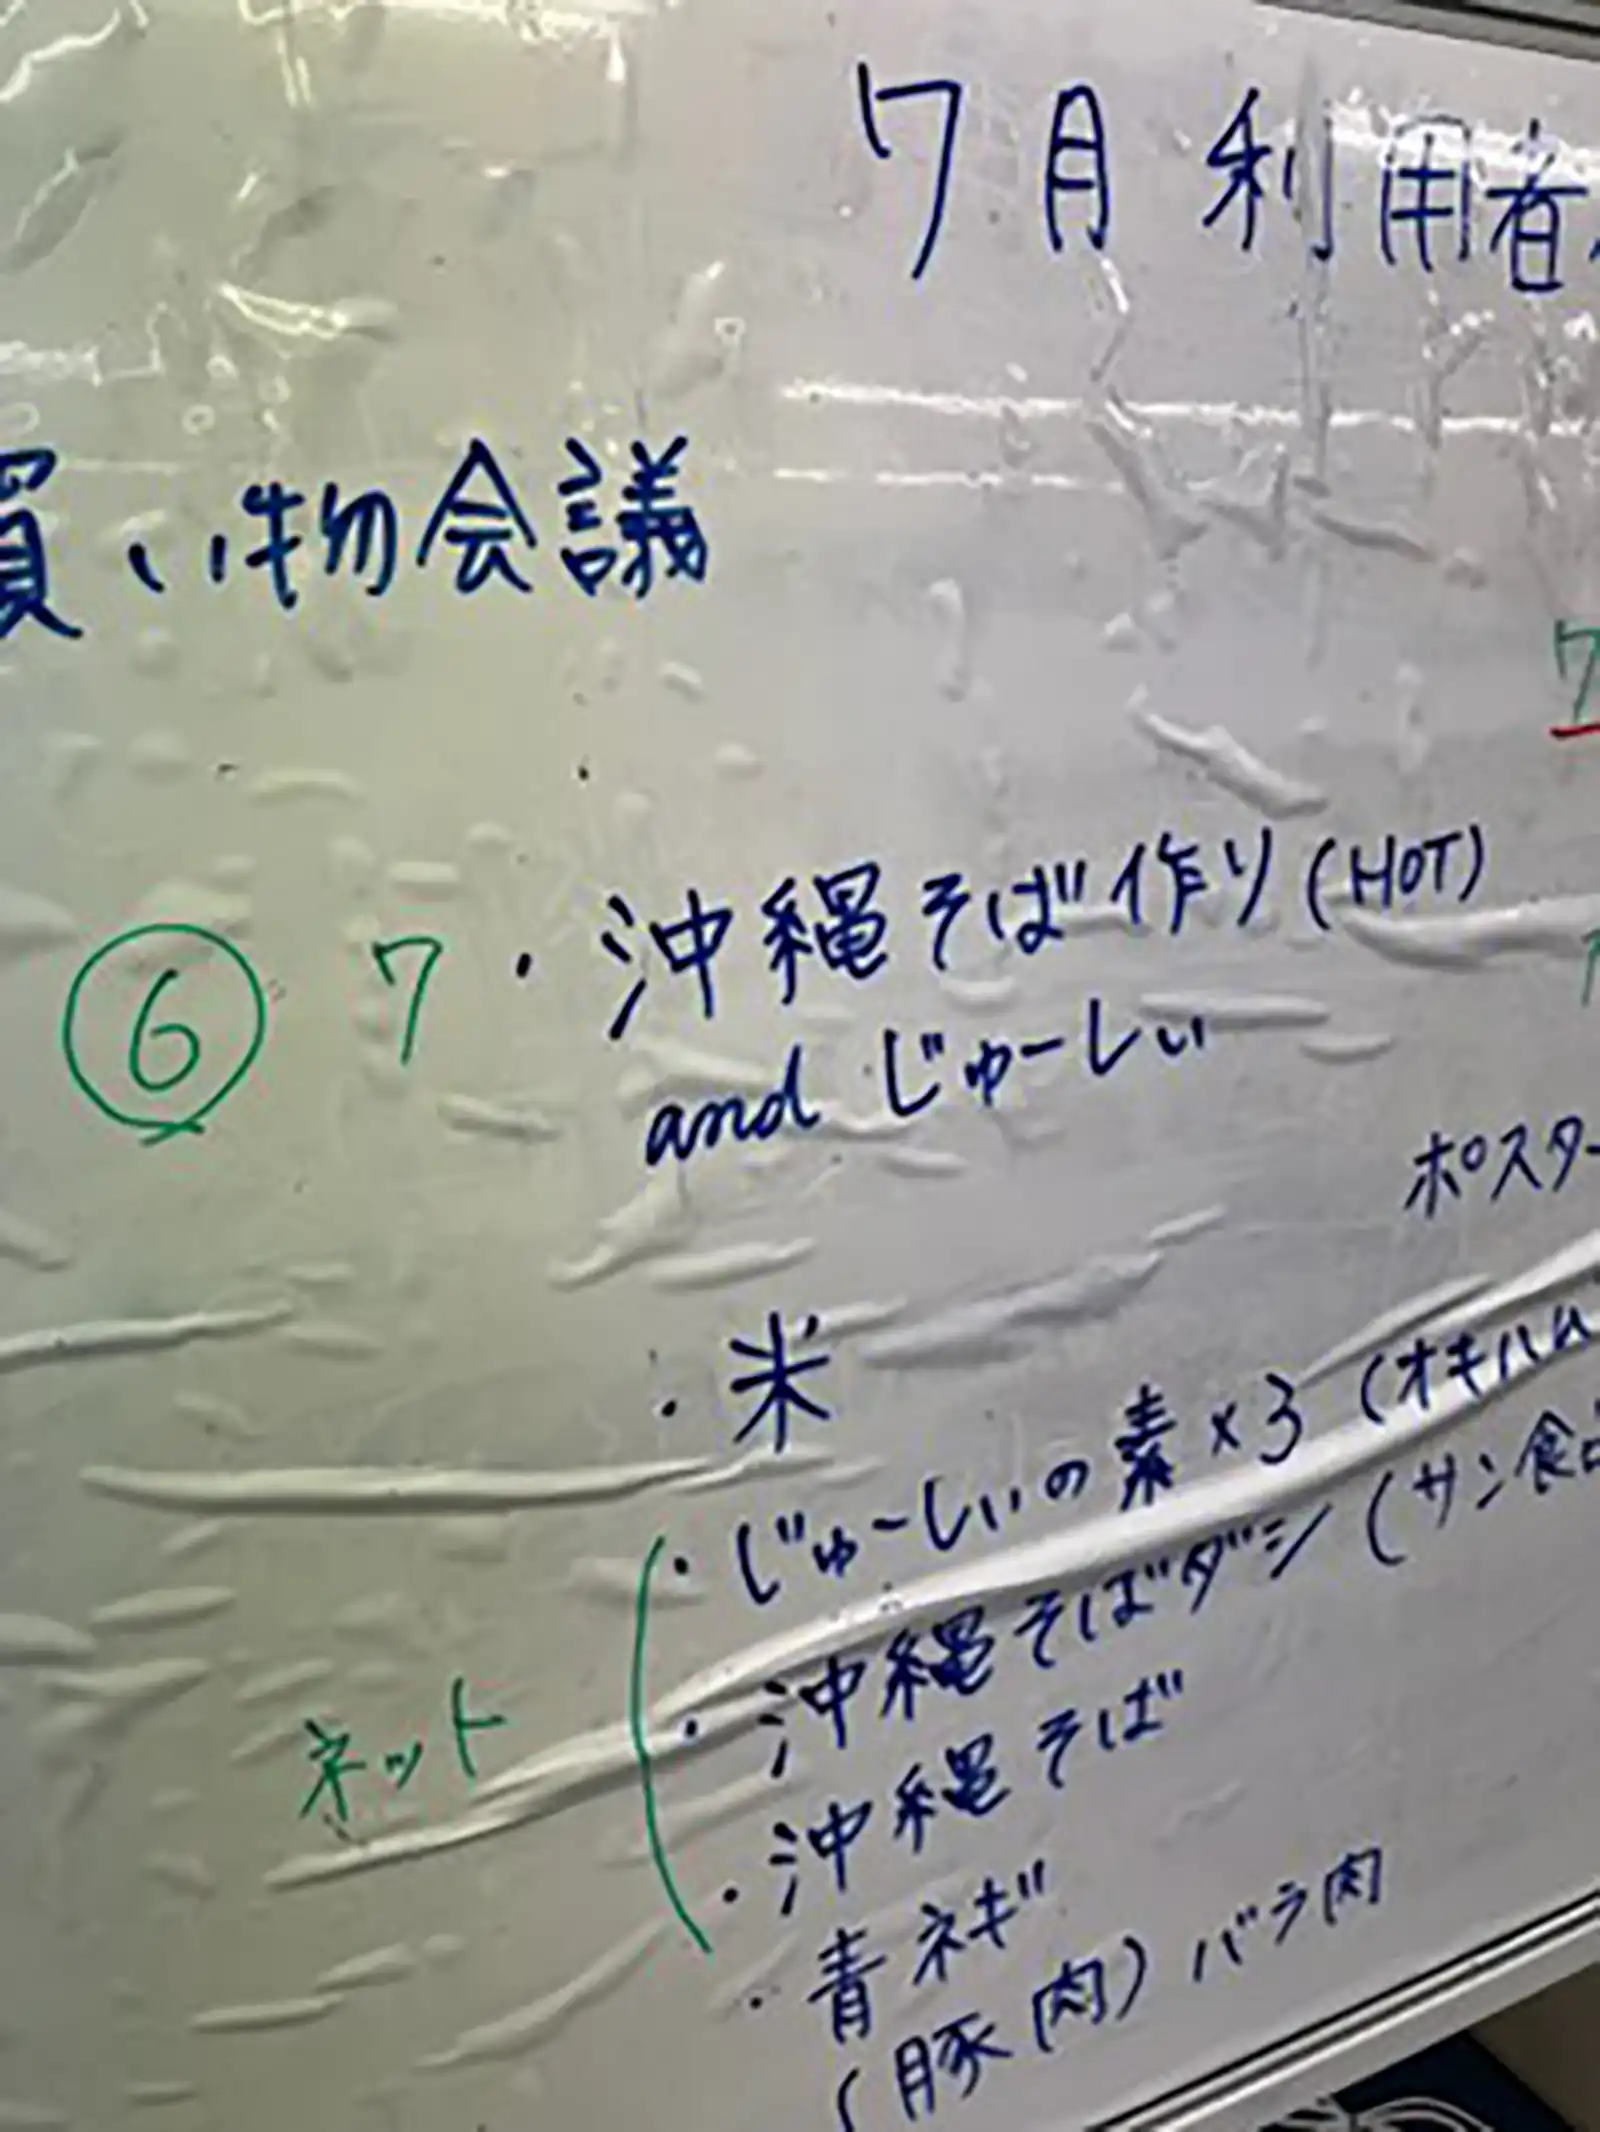 7月利用者
買い物会議
7
⑥ 7 ・沖縄そば作り(HOT)
and じゅーしぃ
ポスター
・米
・じゅーしぃの素×3 (オキハム
ネット
・沖縄そばダシ (サン食品
・沖縄そば
・青ネギ
(豚肉) バラ肉